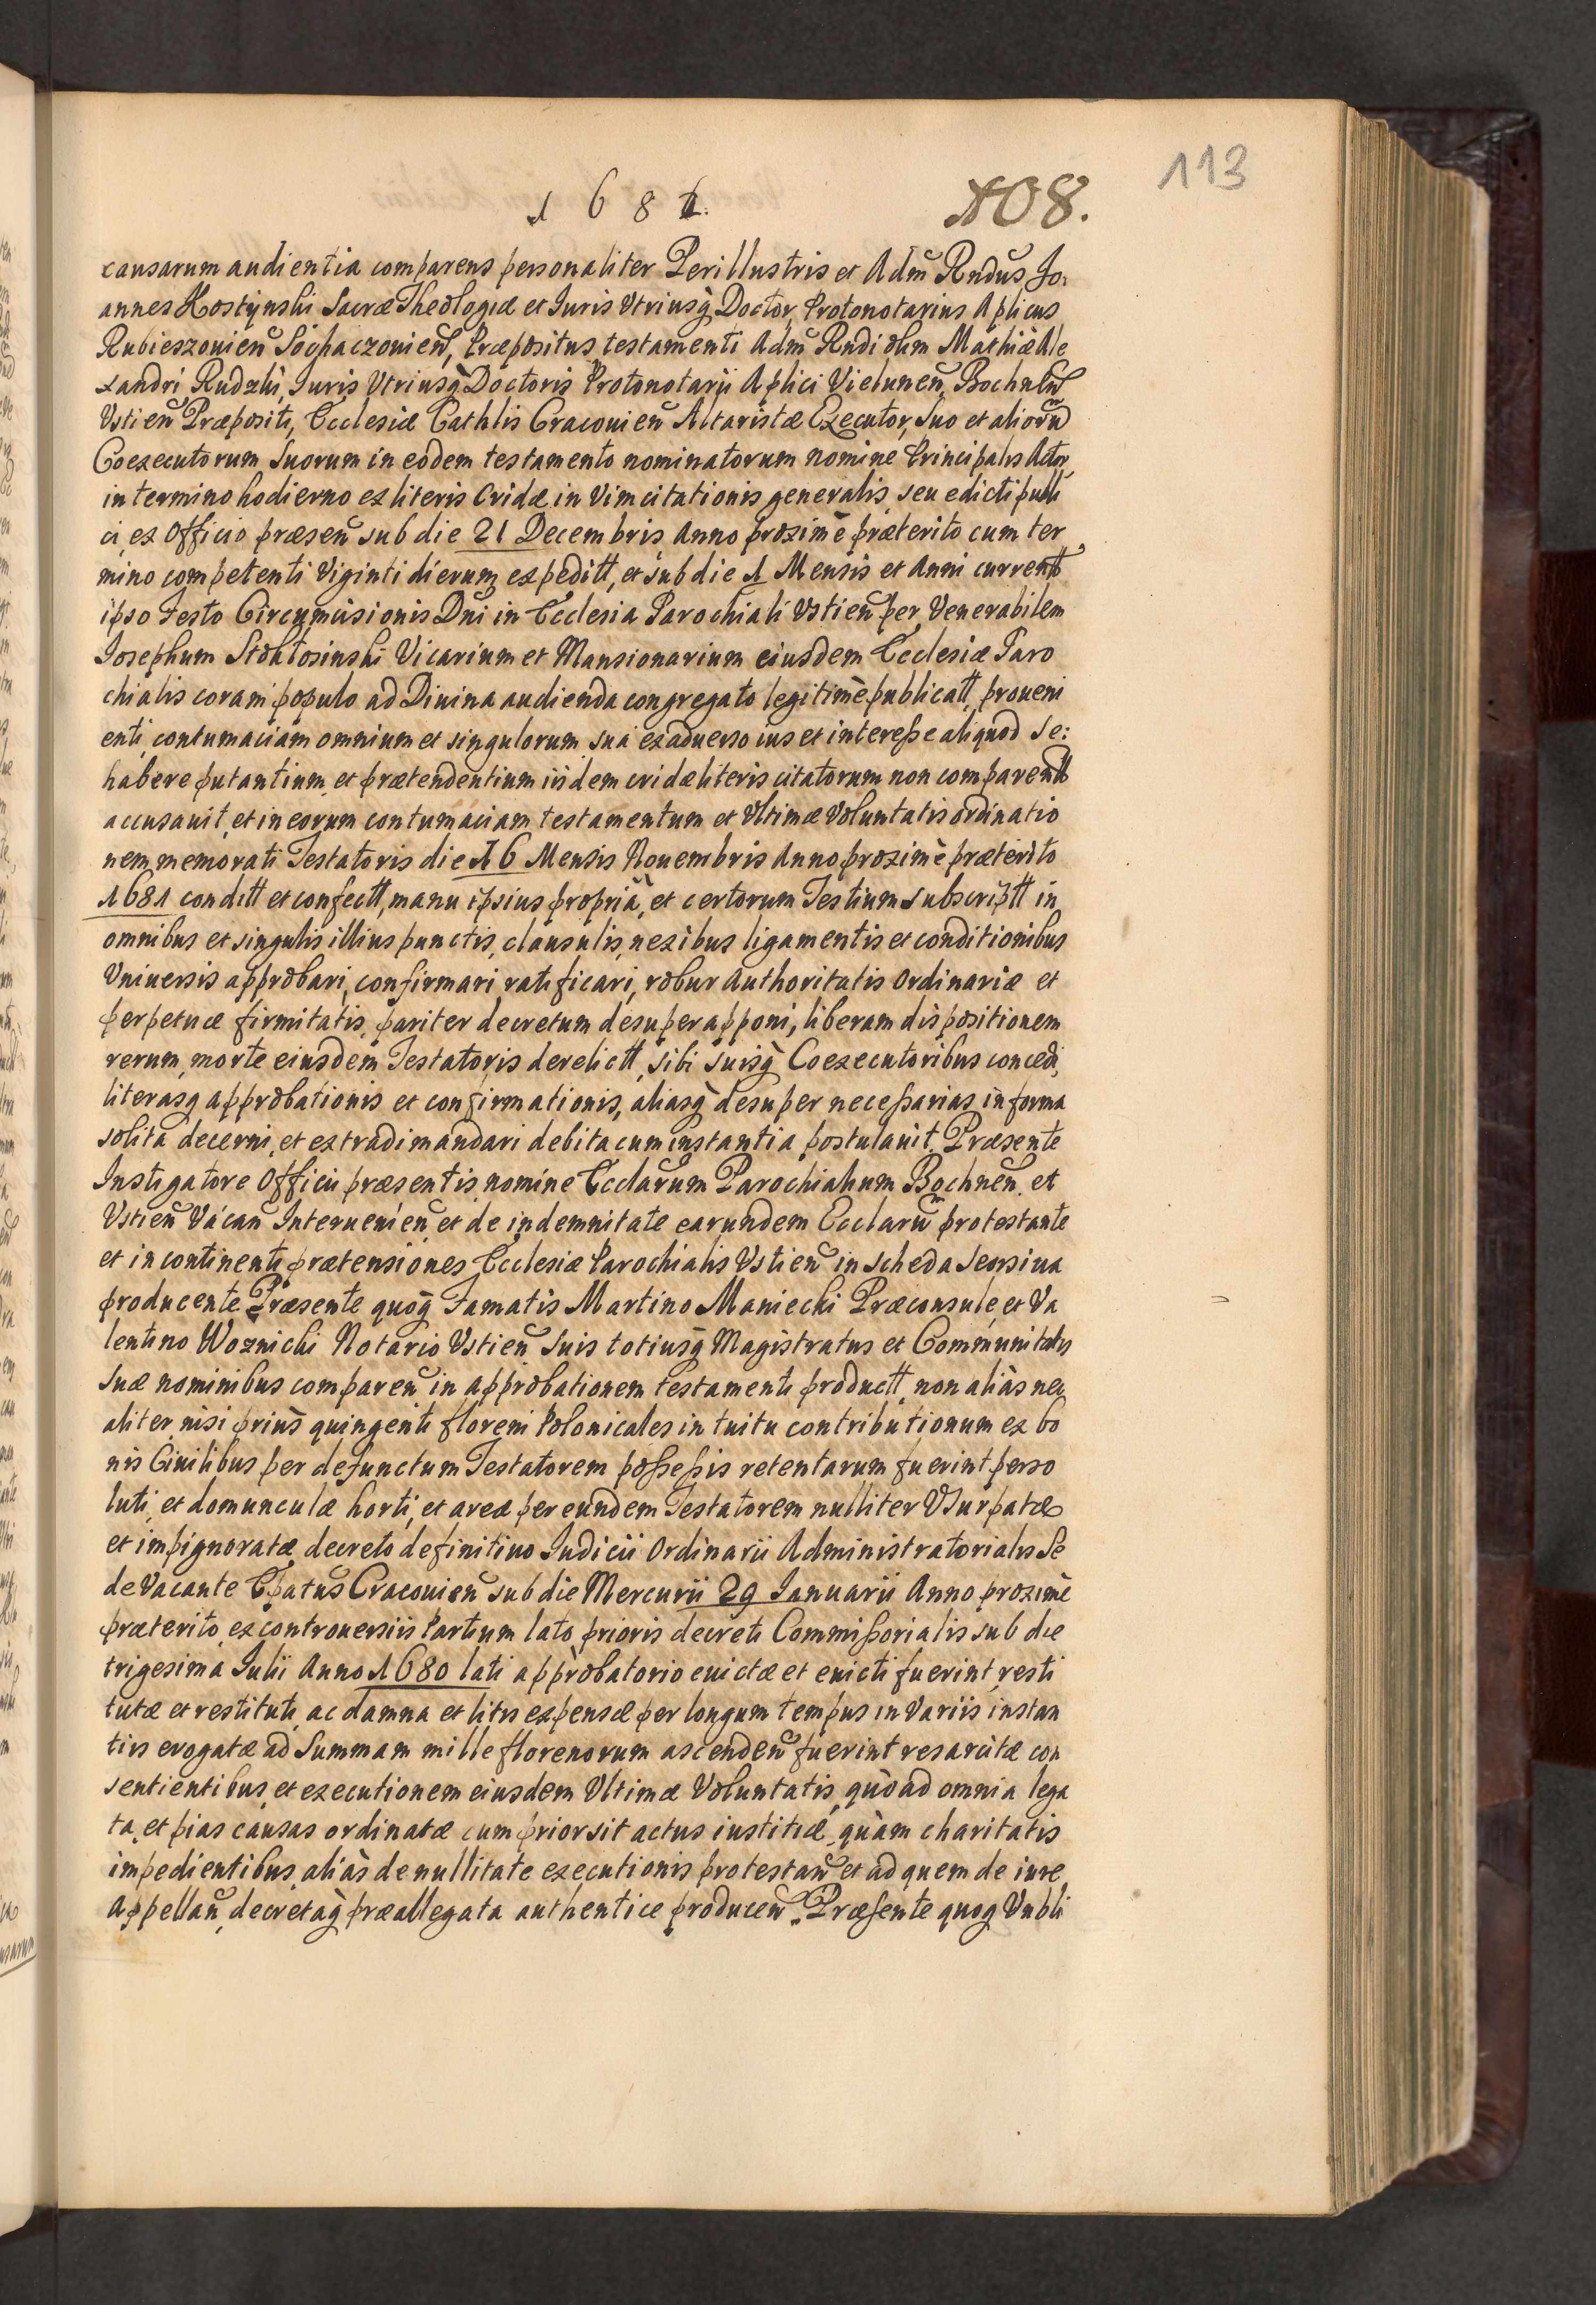 113
1682.
108.
causarum audientia comparens personaliter Perillustris et Adm Rndus Jo,
annes Kostynski Sacræ Theologiæ et Iuris Vtriusq Doctor, Protonotarius Aplicus
Rubieszouien Sochaczouien, Præpositus testamenti Adm Rndi olim Mathiæ Ale
xandri Rudzki, Iuris Vtriusq Doctoris Protonotarii Aplici Vielunen, Bochnen
Vstien Præpositi, Ecclesiæ Cathlis Cracouien Altaristæ Executor, suo et aliorũ
Coexecutorum suorum in eodem testamento nominatorum nomine Principalis Actor,
in termino hodierno ex literis Cridæ in Vim citationis generalis, seu edicti publi
ci, ex Officio præsen sub die 21 Decembris Anno proximè præterito cum ter
mino competenti Viginti dierum expeditt, et sub die 1 Mensis et Anni currentt
ipso Festo Circumcisionis Dni in Ecclesia Parochiali Vstien per Venerabilem
Josephum Stoktosinski Vicarium et Mansionarium eiusdem Ecclesiæ Paro
chialis coram populo ad Diuina audienda congregato legitimè publicatt, proueni
enti, contumaciam omnium et singulorum sua ex aduerso ius et interesse aliquod se:
habere putantium, et prætendentium iisdem cridæ literis citatorum non comparentt
accusauit, et in eorum contumaciam testamentum et Vltimæ Voluntatis ordinatio
nem memorati Testatoris die 16 Mensis Nouembris Anno proximè præterito
1681 conditt et confectt, manu ipsius propria, et certorum Testium subscriptt in
omnibus et singulis illius punctis, clausulis, nexibus ligamentis et conditionibus
Vniuersis approbari, confirmari ratificari, robur Authoritatis Ordinariæ et
perpetuæ firmitatis, pariter decretum desuper apponi, liberam dispositionem
rerum, morte eiusdem Testatoris derelictt, sibi suisq Coexecutoribus concedi,
literasq approbationis et confirmationis, aliasq desuper necessarias in forma
solita decerni, et extradi mandari debita cum instantia postulauit. Præsente
Instigatore Officii præsentis nomine Ecclarum Parochialium Bochnen et
Vstien Vacan Interuenien et de indemnitate earundem Ecclarũ protestante
et in continenti prætensiones Ecclesiæ Parochialis Vstien in scheda seorsiua
producente. Præsente quoq Famatis Martino Maniecki Præconsule, et Va
lentino Woznicki Notario Vstien suis totiusq Magistratus et Communitatis
suæ nominibus comparen in approbationem testamenti productt, non aliàs nec
aliter, nisi prius quingenti floreni Polonicales intuitu contributionum ex bo
nis Ciuilibus per defunctum Testatorem possessis retentarum fuerint perso
luti, et domunculæ horti, et areæ per eundem Testatorem nulliter Vsurpatæ
et impignoratæ, decreto definitiuo Iudicii Ordinarii Administratorialis Se
de Vacante Epatus Cracouien sub die Mercurii 29 Ianuarii Anno proximè
præterito, ex controuersiis Partium lato, prioris decreti Commissorialis sub die
trigesima Iulii Anno 1680 lati approbatorio euictæ et euicti fuerint, resti
tutæ et restituti, ac damna et litis expensæ per longum tempus in Variis instan
tiis erogatæ ad Summam mille florenorum ascenden fuerint resarcitæ con
sentientibus, et executionem eiusdem Vltimæ Voluntatis, quò ad omnia lega
ta, et pias causas ordinatæ cum prior sit actus iustitiæ, quàm charitatis
impedientibus, aliàs de nullitate executionis protestan et ad quem de iure
Appellan, decretaq præallegata authentice producen. Præsente quoq Vnbli